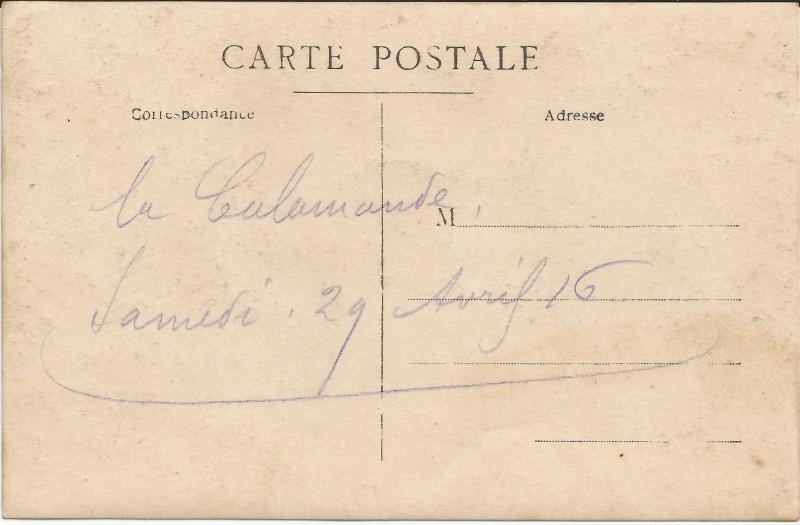 CARTE POSTALE
Correspondance
Adresse
la Calamande,
M
Samedi. 29 Avril 16